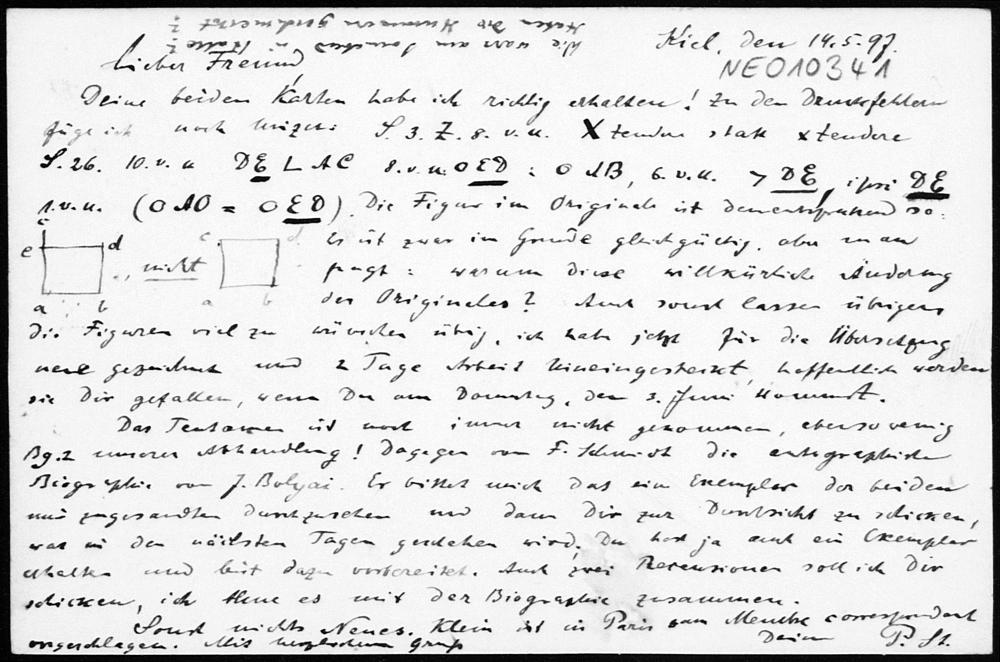 Wie war es am Sonntag in Halle?
Haben die Hummern geschmeckt?
Kiel, den 14.5.97.
NEO10341
Lieber Freund,
Deine beiden Karten habe ich richtig erhalten! Zu den Druckfehlern
füge ich noch hinzu: S. 3. Z. 8. v. u. Xtendere statt xtendere
S. 26. 10. v. u DE L AC 8. v. u. O ED : O AB, 6. v. u. > DE, ipsi DE
1. v. u. (O AO = O ED). Die Figur im Originale ist dementsprechend so:
c
e d
a b
, nicht
c d
a b
Es ist zwar im Grunde gleichgültig, aber man
fragt: warum diese willkürliche Änderung
des Originales? Auch sonst lassen übrigens
die Figuren viel zu wünschen übrig, ich habe jetzt für die Übersetzung
neue gezeichnet und 2 Tage Arbeit hineingesteckt, hoffentlich werden
sie Dir gefallen, wenn Du am Donnerstag, den 3. Juni kommst.
Das Tentamen ist noch immer nicht gekommen, ebensowenig
Bg. 2 unserer Abhandlung! Dagegen von F. Schmidt die autographirte
Biographie von J. Bolyai. Er bittet mich das ein Exemplar der beiden
mir zugesandten durchzusehen und dann Dir zur Durchsicht zu schicken,
was in den nächsten Tagen geschehen wird. Du hast ja auch ein Exemplar
erhalten und bist dazu vorbereitet. Auch zwei Recensionen soll ich Dir
schicken, ich thue es mit der Biographie zusammen.
Sonst nichts Neues. Klein ist in Paris zum Membre correspondant
vorgeschlagen. Mit herzlichem Gruß
Dein P. St.